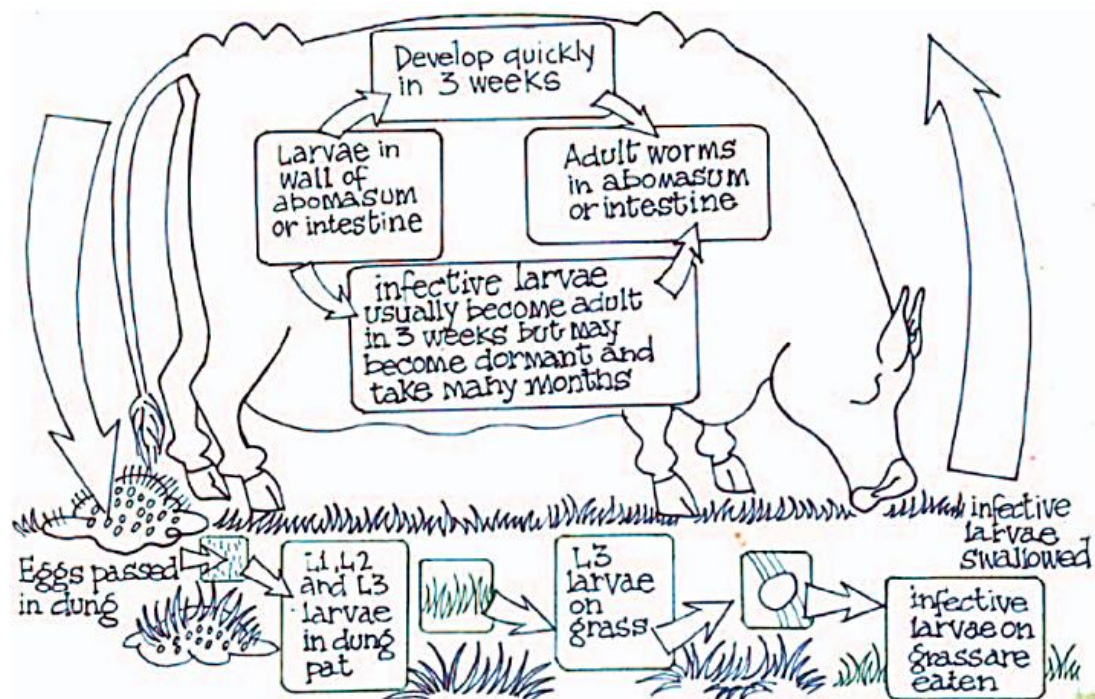 Develop quickly
in 3 weeks
Larvae in
wall of
abomasum
or intestine
Adult worms
in abomasum
or intestine
infective larvae
usually become adult
in 3 weeks but may
become dormant and
take many months
infective
larvae
swallowed
Eggs passed
in dung
L1, L2
and L3
larvae
in dung
pat
L3
larvae
on
grass
infective
larvae on
grass are
eaten